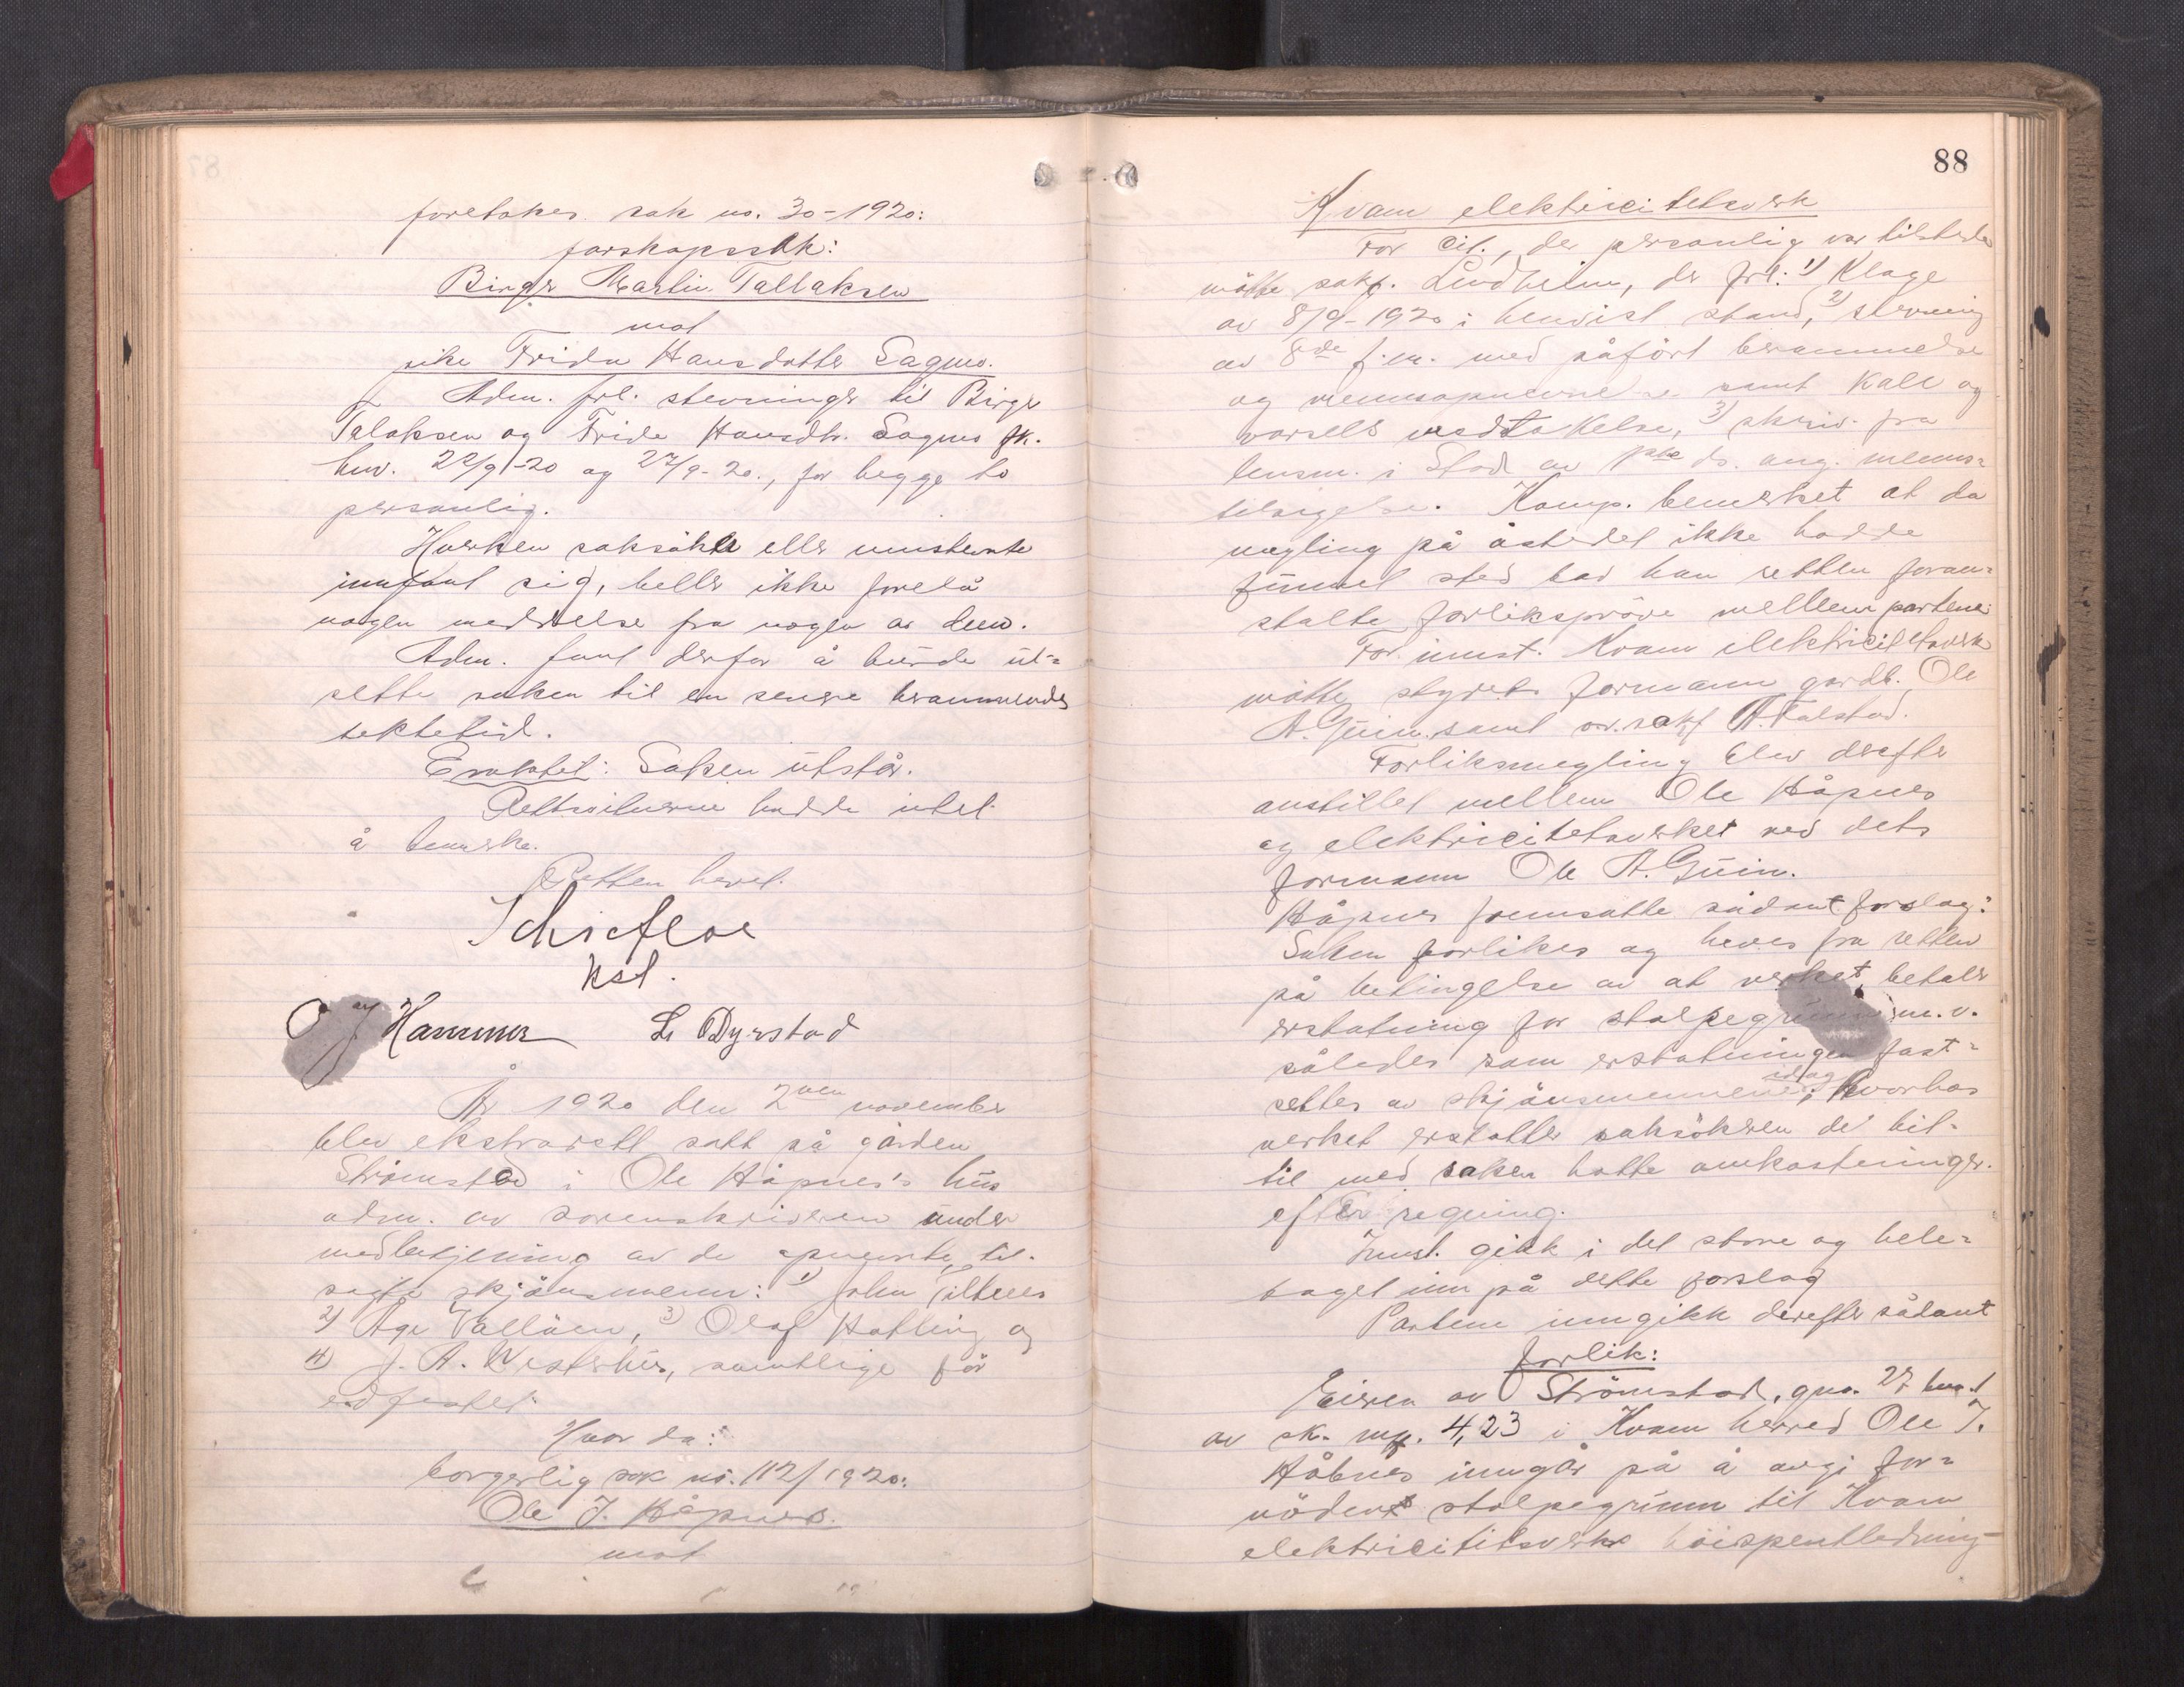 foretokes sak no. 30-1920:
farskapssak:
Birger Martin Tallaksen
mot
pike Frida Hansdatter Sagmo.
Adm. frl. stevninger til Birger
Talaksen og Frida Hansdtr. Sagmo fk.
hnv. 22/9-20 og 27/9-20., for begge to
personlig.
Hverken saksökte eller innstevnte
innfant sig, heller ikke forelå
nogen meddelelse fra nogen av dem.
Adm. fant derfor å burde ut-
sette saken til en senere berammende
tektetid.
Eraktet: Saken utstår.
Rettsvitnerne hadde intet
å bemerke.
Retten hevet.
Schiefloe
kst.
O J Hammer L. Dyrstad
År 1920 den 2nen november
blev ekstrarett satt på gården
Strömstad i Ole Håpnes's hus
adm. av sorenskriveren under
medbetjening av de opnevnte, til-
sagte skjönsmenn: 1) John Tiltnes
2) Åge Vallöen, 3) Olaf Hatling og
4) J. A. Vesterhus, samtlige för
edfestet.
Hvor da:
borgerlig sak no. 112/1920:
Ole J. Håpnes.
mot
88
Kvam elektricitetsverk
For cit., der personlig var tilstede
mötte sakf. Lindheim, der frl: 1) Klage
av 8/9-1920 i henvist stand, 2) stevning
av 8de f.m. med påfört berammelse
og mennsopnevnelse samt kall og
varsels vedtakelse, 3) skriv. fra
lensm. i Stod av 1ste ds. ang. menns-
tilsigelse. Komp. bemerket at da
megling på åstedet ikke hadde
funnet sted bad han retten foran-
stalte forlikspröve mellem partene
For innst. Kvam elektricitetsverk
mötte styrets formann gardb. Ole
A. Guin samt o.r.sakf A. Falstad.
Forliksmegling blev derefter
anstillet mellem Ole Håpnes
og elektricitetsverket ved dets
formann Ole A. Guin.
Håpnes fremsatte sådant forslag:
Saken forlikes og heves fra retten
på betingelse av at verket betaler
erstatning for stolpegrunn m.v.
således som erstatningen fast-
settes av skjönsmennene idag; hvorhos
verket erstatter saksökeren de hit-
til med saken hatte omkostninger
efter regning.
Innst. gikk i det store og hele-
taget inn på dette forslag
Partene inngikk derefter sådant
forlik:
Eieren av Strömstad, gno. 27 bno. 1
av sk. mrk. 4,23 i Kvam herred Ole J.
Håbnes inngår på å avgi for-
nöden stolpegrunn til Kvam
elektricitetsverks höispentledning